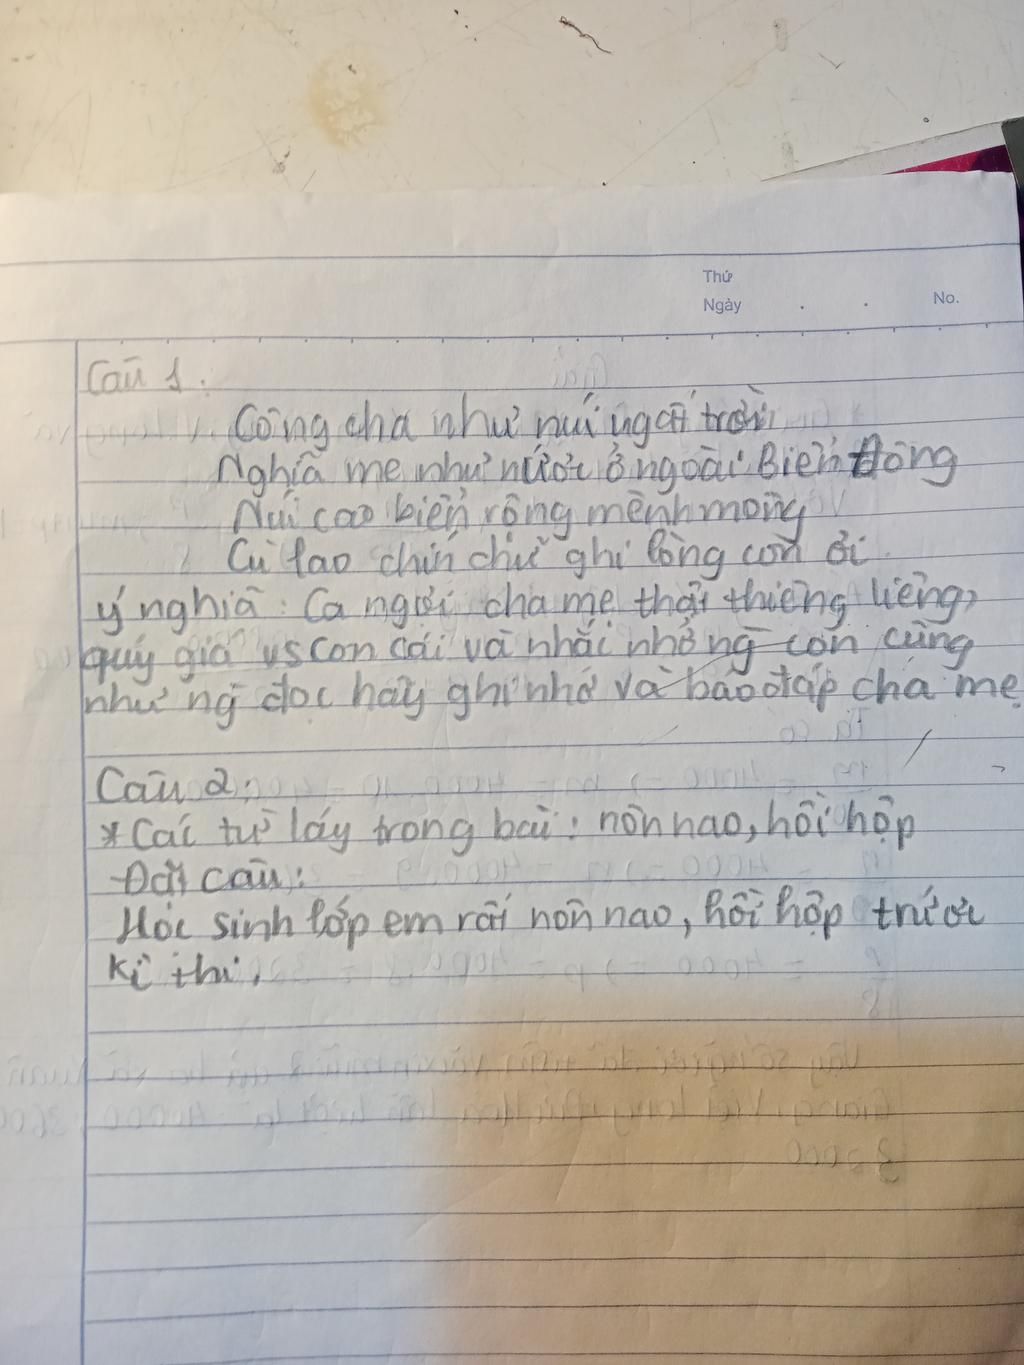 Thứ
Ngày . . No.
Câu 1.
Công cha như núi ngất trời
Nghĩa mẹ như nước ở ngoài Biển Đông
Núi cao biển rộng mênh mông
Cù lao chín chữ ghi lòng con ơi
ý nghĩa: Ca ngợi cha mẹ thật thiêng liêng,
quý giá vs con cái và nhắc nhở ng con cũng
như ng đọc hãy ghi nhớ và báo đáp cha mẹ
Câu 2:
*Các từ láy trong bài: nôn nao, hồi hộp
Đặt câu:
Học sinh lớp em rất nôn nao, hồi hộp trước
kì thi.